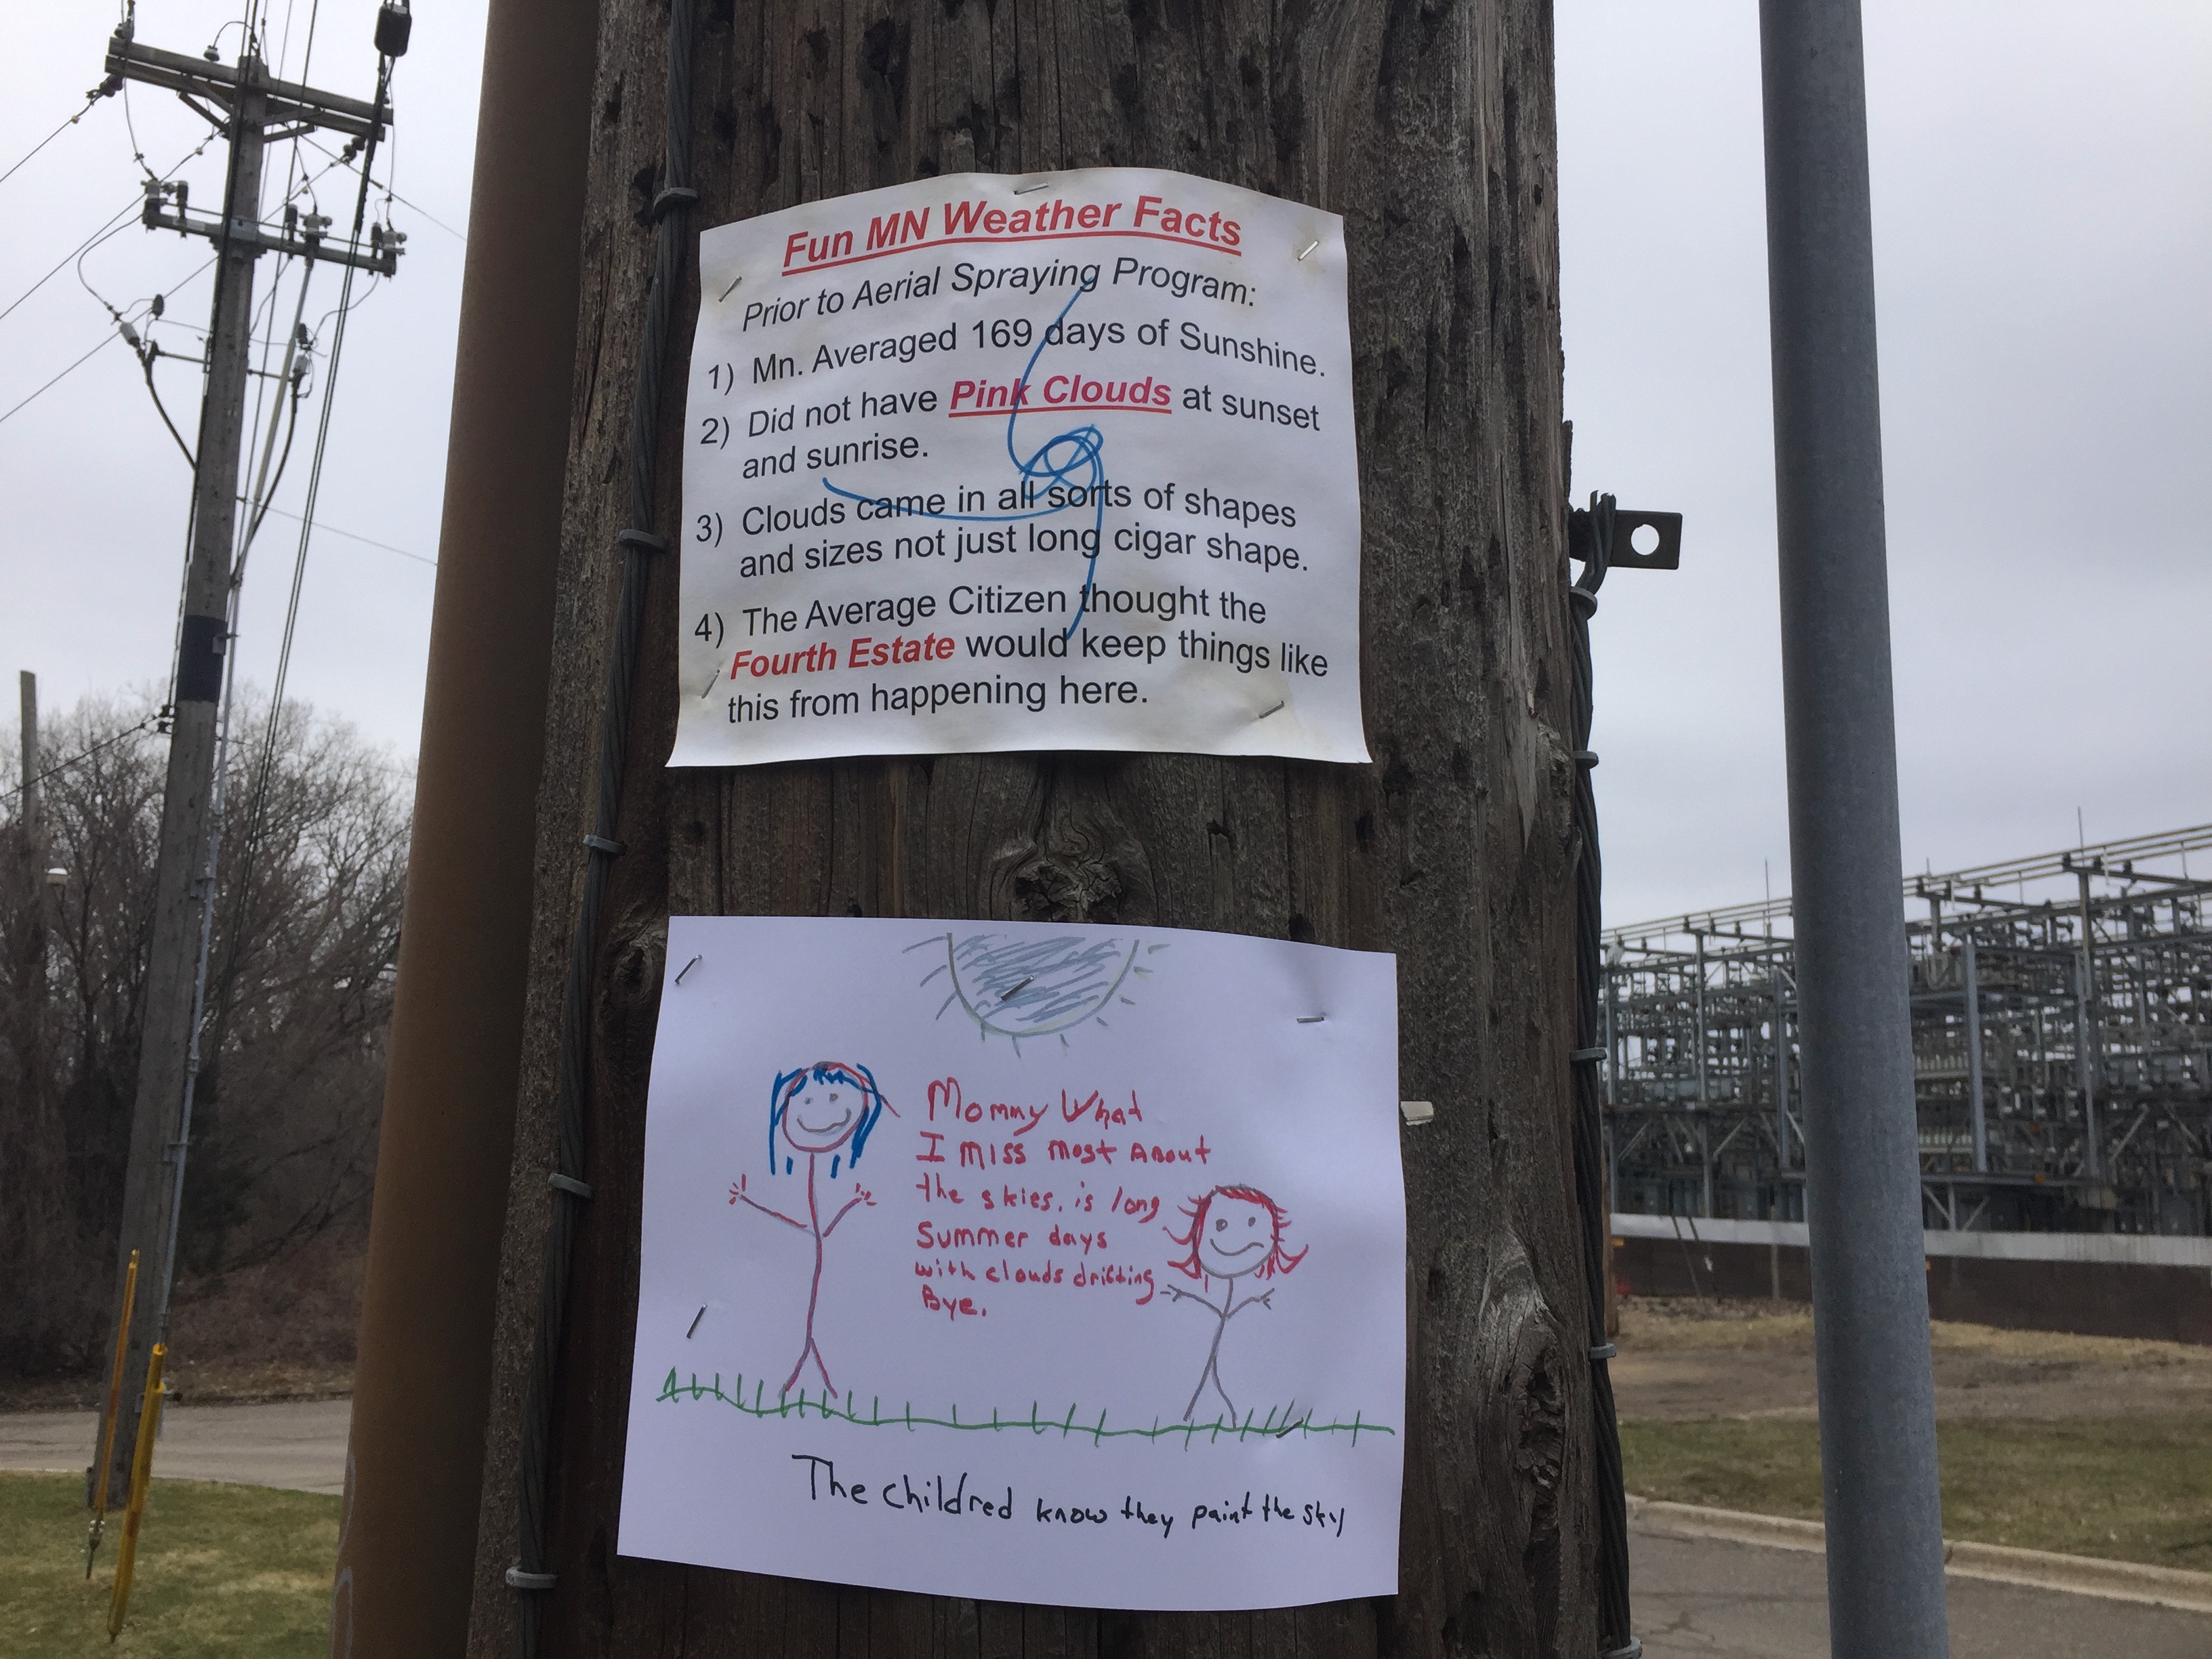 Fun MN Weather Facts
Prior to Aerial Spraying Program:
1) Mn. Averaged 169 days of Sunshine.
2) Did not have Pink Clouds at sunset
and sunrise.
3) Clouds came in all sorts of shapes
and sizes not just long cigar shape.
4) The Average Citizen thought the
Fourth Estate would keep things like
this from happening here.
Mommy What
I miss most About
the skies, is long
Summer days
with clouds drifting
Bye.
The childred know they paint the sky